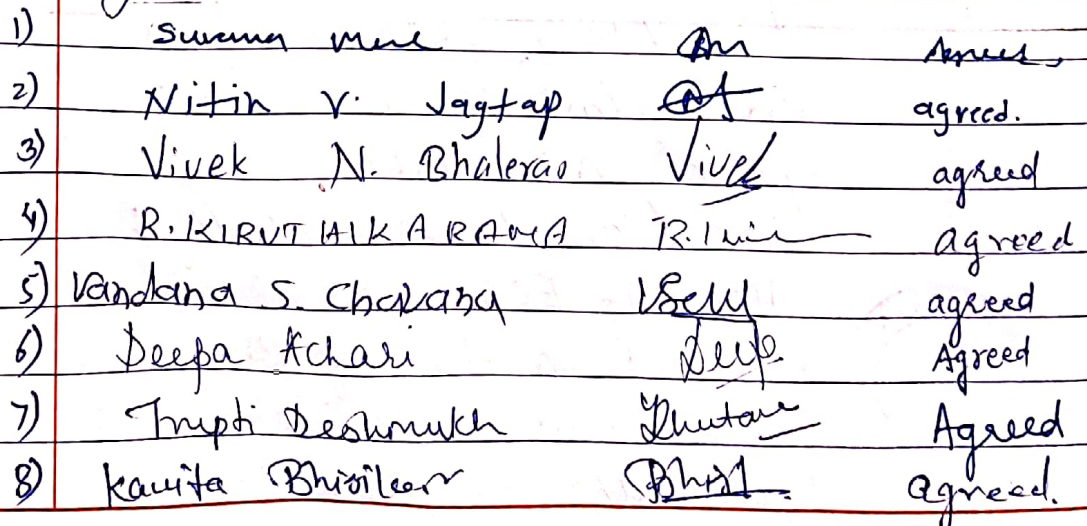 1) Suvarna More Agreed.
2) Nitin V. Jagtap agreed.
3) Vivek N. Bhalerao Vivek agreed
4) R. KIRUTHIKA RAMA agreed
5) Vandana S. Chavang agreed
6) Deepa Achari Deepa Agreed
7) Trupti Deshmukh Agreed
8) Kavita Bhisikar agreed.